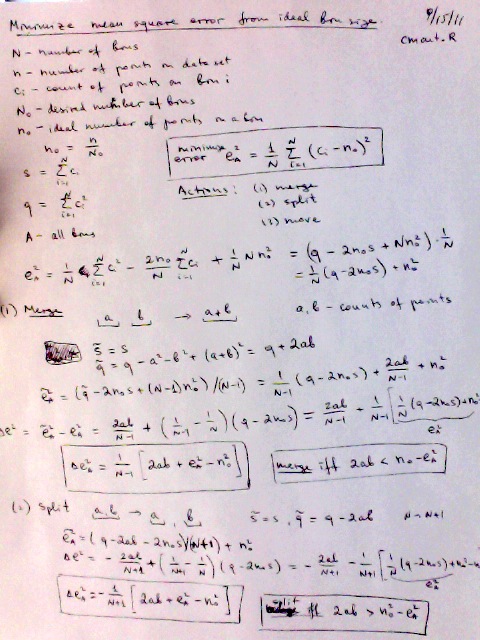 Minimize mean square error from ideal bin size. 9/15/11
cmout.R
N - number of bins
n - number of points in data set
cᵢ - count of points in bin i
N₀ - desired number of bins
n₀ - ideal number of points in a bin
n₀ = n/N₀
minimize error e²_A = 1/N Σᵢ₌₁ᴺ (cᵢ - n₀)²
s = Σᵢ₌₁ᴺ cᵢ
Actions: (1) merge
(2) split
(3) move
q = Σᵢ₌₁ᴺ cᵢ²
A - all bins
e²_A = 1/N Σᵢ₌₁ᴺ cᵢ² - 2n₀/N Σᵢ₌₁ᴺ cᵢ + 1/N N n₀² = (q - 2n₀s + Nn₀²) · 1/N
= 1/N (q - 2n₀s) + n₀²
(1) Merge a b → a+b a, b - counts of points
s̃ = s
q̃ = q - a² - b² + (a+b)² = q + 2ab
ẽ²_A = (q̃ - 2n₀s + (N-1)n₀²)/(N-1) = 1/(N-1) (q - 2n₀s) + 2ab/(N-1) + n₀²
Δe² = ẽ²_A - e²_A = 2ab/(N-1) + (1/(N-1) - 1/N)(q - 2n₀s) = 2ab/(N-1) + 1/(N-1) [1/N (q - 2n₀s) + n₀²
e²_A
Δe²_A = 1/(N-1) [2ab + e²_A - n₀²]
merge iff 2ab < n₀ - e²_A
(2) Split a,b → a, b s̃ = s, q̃ = q - 2ab N → N+1
ẽ²_A = (q - 2ab - 2n₀s)/(N+1) + n₀²
Δe² = - 2ab/(N+1) + (1/(N+1) - 1/N)(q - 2n₀s) = - 2ab/(N+1) - 1/(N+1) [1/N (q - 2n₀s) + n₀² - n
e²_A
Δe²_A = - 1/(N+1) [2ab + e²_A - n₀²]
split iff 2ab > n₀² - e²_A